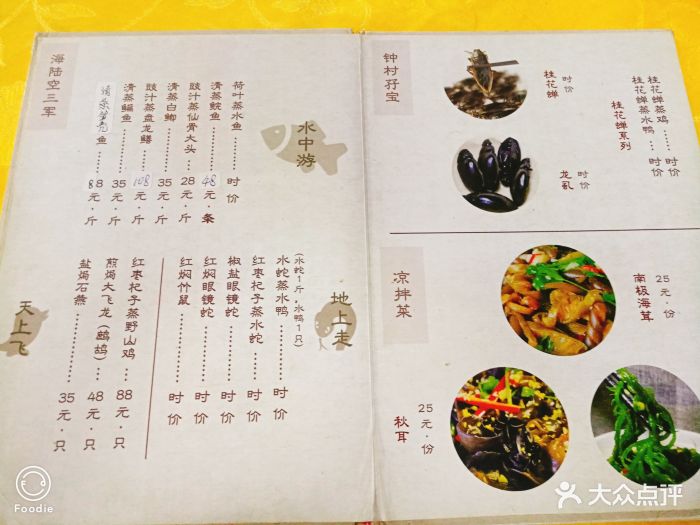 海陆空三军
水中游
荷叶蒸水鱼……时价
清蒸鲩鱼……48元·条
豉汁蒸仙骨大头…28元·斤
清蒸白鲫……35元·斤
豉汁蒸盘龙鳝…108元·斤
清蒸鳊鱼……35元·斤
鱼……88元·斤
地上走
(水蛇1斤,水鸭1只)
水蛇蒸水鸭……时价
红枣杞子蒸水蛇…时价
椒盐眼镜蛇……时价
红焖眼镜蛇……时价
红焖竹鼠……时价
天上飞
红枣杞子蒸野山鸡…88元·只
煎焗大飞龙(鹧鸪)…48元·只
盐焗石燕……35元·只
钟村孖宝
桂花蝉 时价
龙虱 时价
桂花蝉系列
桂花蝉蒸鸡…时价
桂花蝉蒸水鸭…时价
凉拌菜
南极海茸 25元·份
秋耳 25元·份
Foodie
大众点评